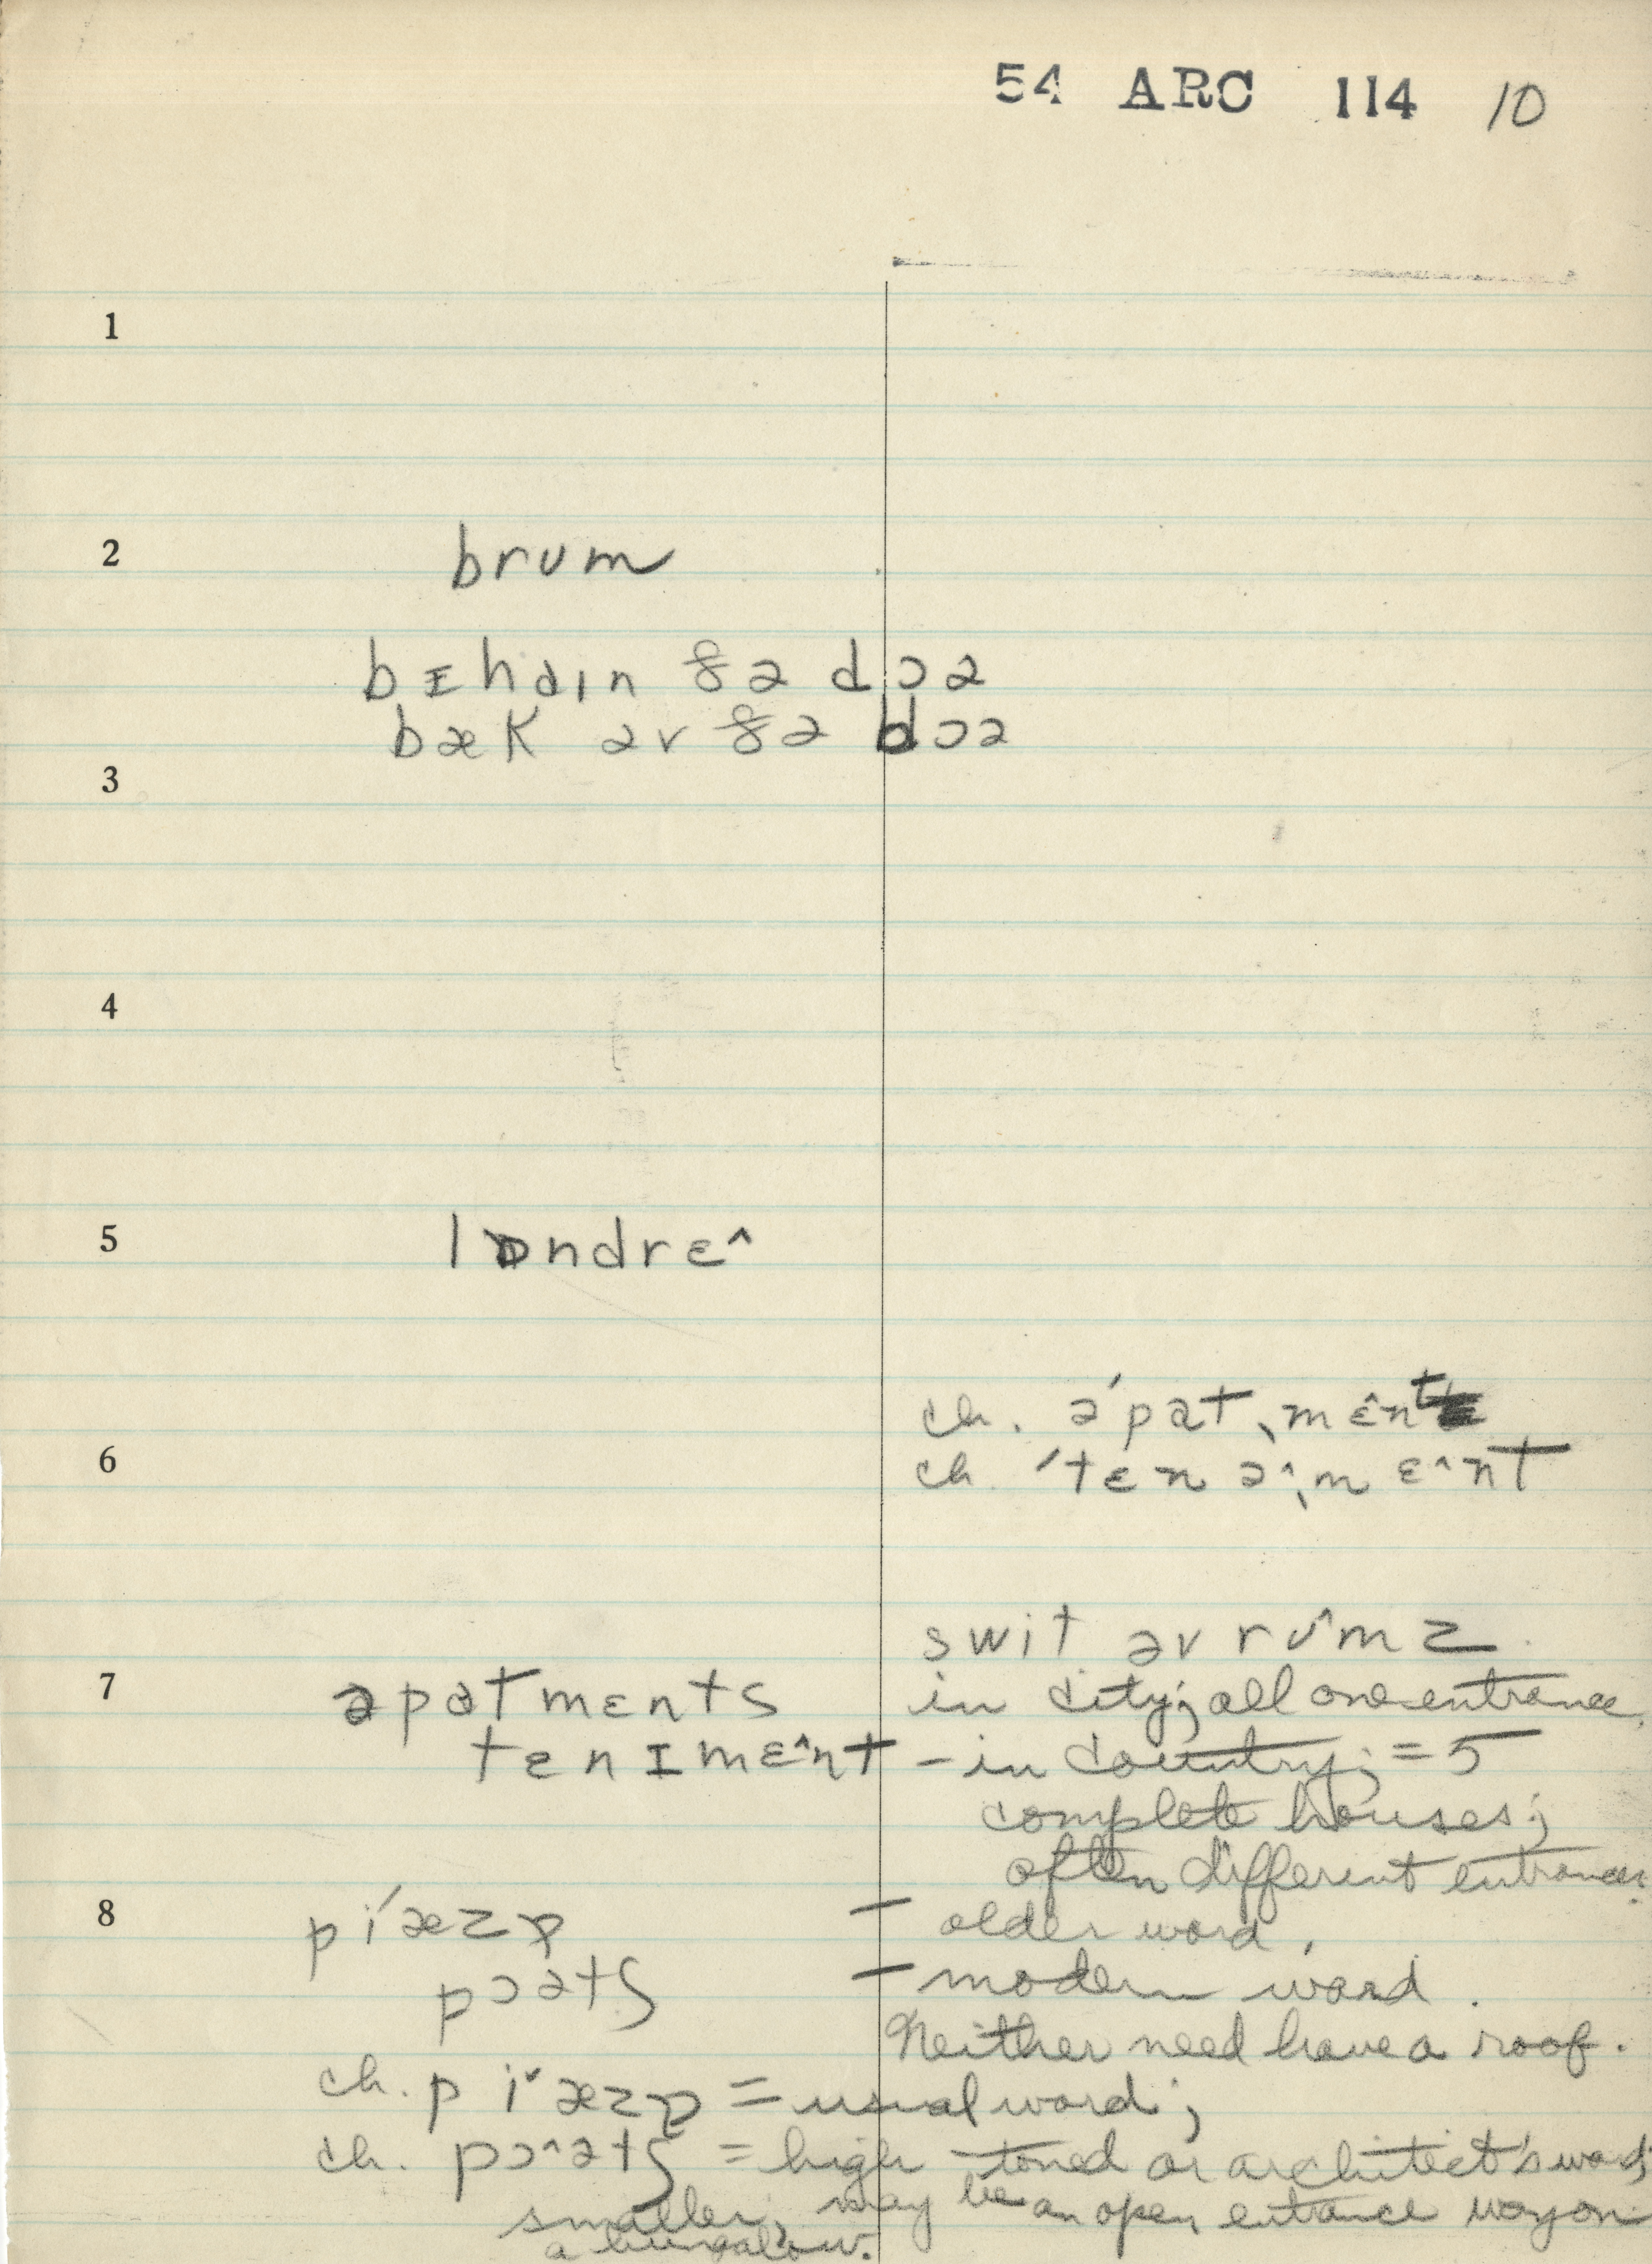 54 ARC 114 10
1
2 brʊm
bɪhaɪn ðə dɔə
bæk əv ðə dɔə
3
4
5 lɒndrɛ^
ch. ə'pat ˌmɛ̂nt
6 ch. 'tɛn ə^ˌm ɛ^nt
swit əv rʊ^mz
7 əpatmɛnts in city; all one entrance.
tɛnɪmɛ^nt – in country; = 5
complete houses;
often different entrances.
8 pi'æzɒ – older word.
pɔətʃ – modern word.
Neither need have a roof.
ch. pi˅æzɒ = usual word;
ch. pɔ^ətʃ = high-toned or architect's word;
smaller, may be an open entrance way on
a bungalow.